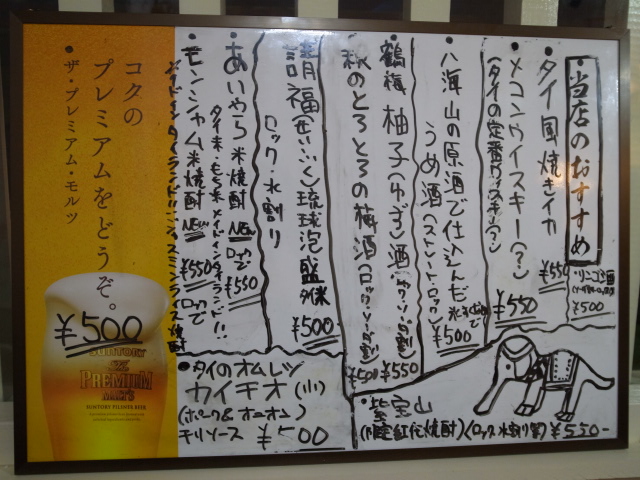 ・当店のおすすめ
・リンゴ酒
¥500
・タイ風焼きイカ
¥550
・メコンウイスキー(?)
(タイの定番ウイスキー?)
¥550
・八海山の原酒で仕込んだ
うめ酒(ストレート・ロック)
¥500
・鶴梅 柚子(ゆず)酒
¥550
・秋のとろとろの梅酒(ロック・ソーダ割)
¥500
・請福(せいふく)琉球泡盛 タイ米
ロック・水割り
¥500
・あいやら 米焼酎 NEW ロックで
タイ米・もち米 メイドインタイランド!!
¥550
・モンシャム 米焼酎 NEW ¥550 ロックで
メイドインタイランド!!ジャスミンライス焼酎
・タイのオムレツ
カイキオ(小)
(ポーク&オニオン)
チリソース ¥500
・紫宝山
¥550-
コクの
プレミアムをどうぞ。
・ザ・プレミアム・モルツ
¥500
SUNTORY
THE
PREMIUM
MALT'S
SUNTORY PILSNER BEER